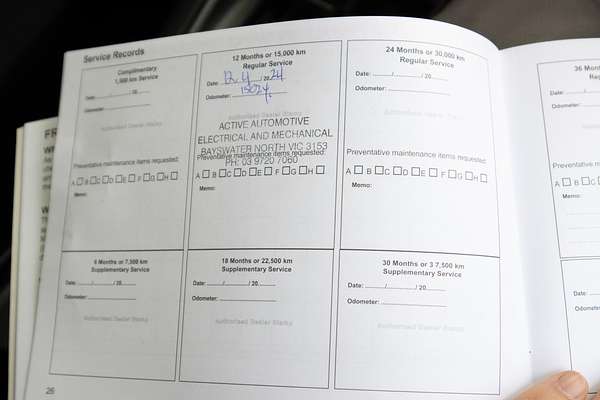 Service Records
Complimentary
1,500 km Service
Date: / / 20
Odometer:
Authorised Dealer Stamp
Preventative maintenance items requested:
A B C D E F G H
Memo:
12 Months or 15,000 km
Regular Service
Date: 12 / 4 / 20 24
Odometer:
Authorised Dealer Stamp
ACTIVE AUTOMOTIVE
ELECTRICAL AND MECHANICAL
BAYSWATER NORTH VIC 3153
PH: 03 9720 7060
Preventative maintenance items requested:
A B C D E F G H
Memo:
24 Months or 30,000 km
Regular Service
Date: / / 20
Odometer:
Authorised Dealer Stamp
Preventative maintenance items requested:
A B C D E F G H
Memo:
36 Mon
Date:
Odometer:
Preventative
A B C
Memo:
6 Months or 7,500 km
Supplementary Service
Date: / / 20
Odometer:
Authorised Dealer Stamp
18 Months or 22,500 km
Supplementary Service
Date: / / 20
Odometer:
Authorised Dealer Stamp
30 Months or 3 7,500 km
Supplementary Service
Date: / / 20
Odometer:
Authorised Dealer Stamp
Date:
Odo
26